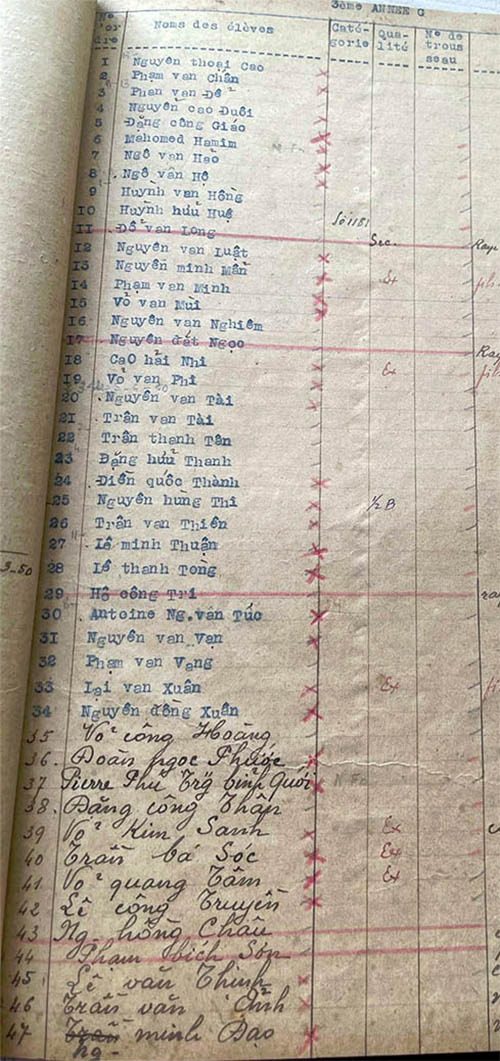 3ème ANNEE G
N° d'or dre Noms des élèves Caté- gorie Qua- lité N° de trous seau
1 Nguyên thoại Cao
2 Phạm van Chẩn
3 Phan van Để
4 Nguyễn cao Đuôi
5 Đặng công Giáo
6 Mahomed Hamim
7 Ngô van Hào
8 Ngô văn Hộ
9 Huỳnh van Hồng
10 Huỳnh hữu Huệ Số 1181
11 Đổ van Long Sec. Raye
12 Nguyên van Luật
13 Nguyên minh Mẫn Ex
14 Phạm van Minh
15 Vỏ van Mùi
16 Nguyên van Nghiêm
17 Nguyên đắt Ngọc Ray
18 Cao hải Nhi Ex
19 Vỏ van Phi
20 Nguyên van Tài
21 Trân van Tài
22 Trân thanh Tân
23 Đặng hưu Thanh
24 Diên quốc Thành
25 Nguyên hùng Thi 1/2 B
26 Trân van Thiên
27 Lê minh Thuận
3-50 28 Lê thanh Tong
29 Hồ công Tri
30 Antoine Ng.văn Túc
31 Nguyên van Vạn
32 Phạm van Vạng
33 Lại van Xuân Ex
34 Nguyên đồng Xuân
35 Võ công Hoàng
36. Đoàn ngọc Phước
37 Pierre Phú Trg bỉnh Quới
38. Đăng công Thân
39 Võ Kim Sanh Ex
40 Trần bá Sóc Ex
41 Võ quang Tâm Ex
42 Lê công Truyền
43 Ng hồng Châu
44 Phạm bích Sơn
45 Lê văn Thinh
46 Trần văn Ảnh
47 Trần minh Đao
ng-